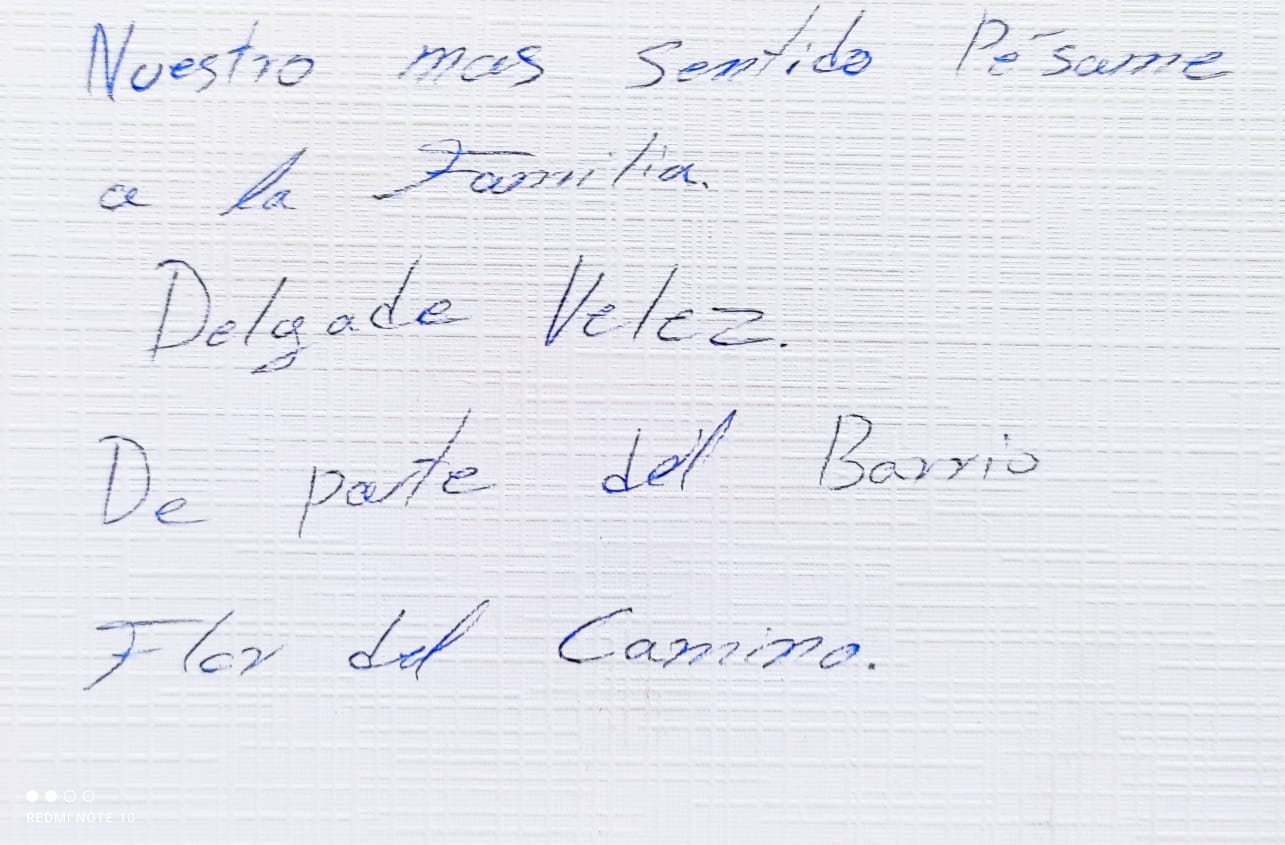 Nuestro mas sentido Pésame
a la Familia.
Delgado Velez.
De parte del Barrio
Flor del Camino.
REDMI NOTE 10